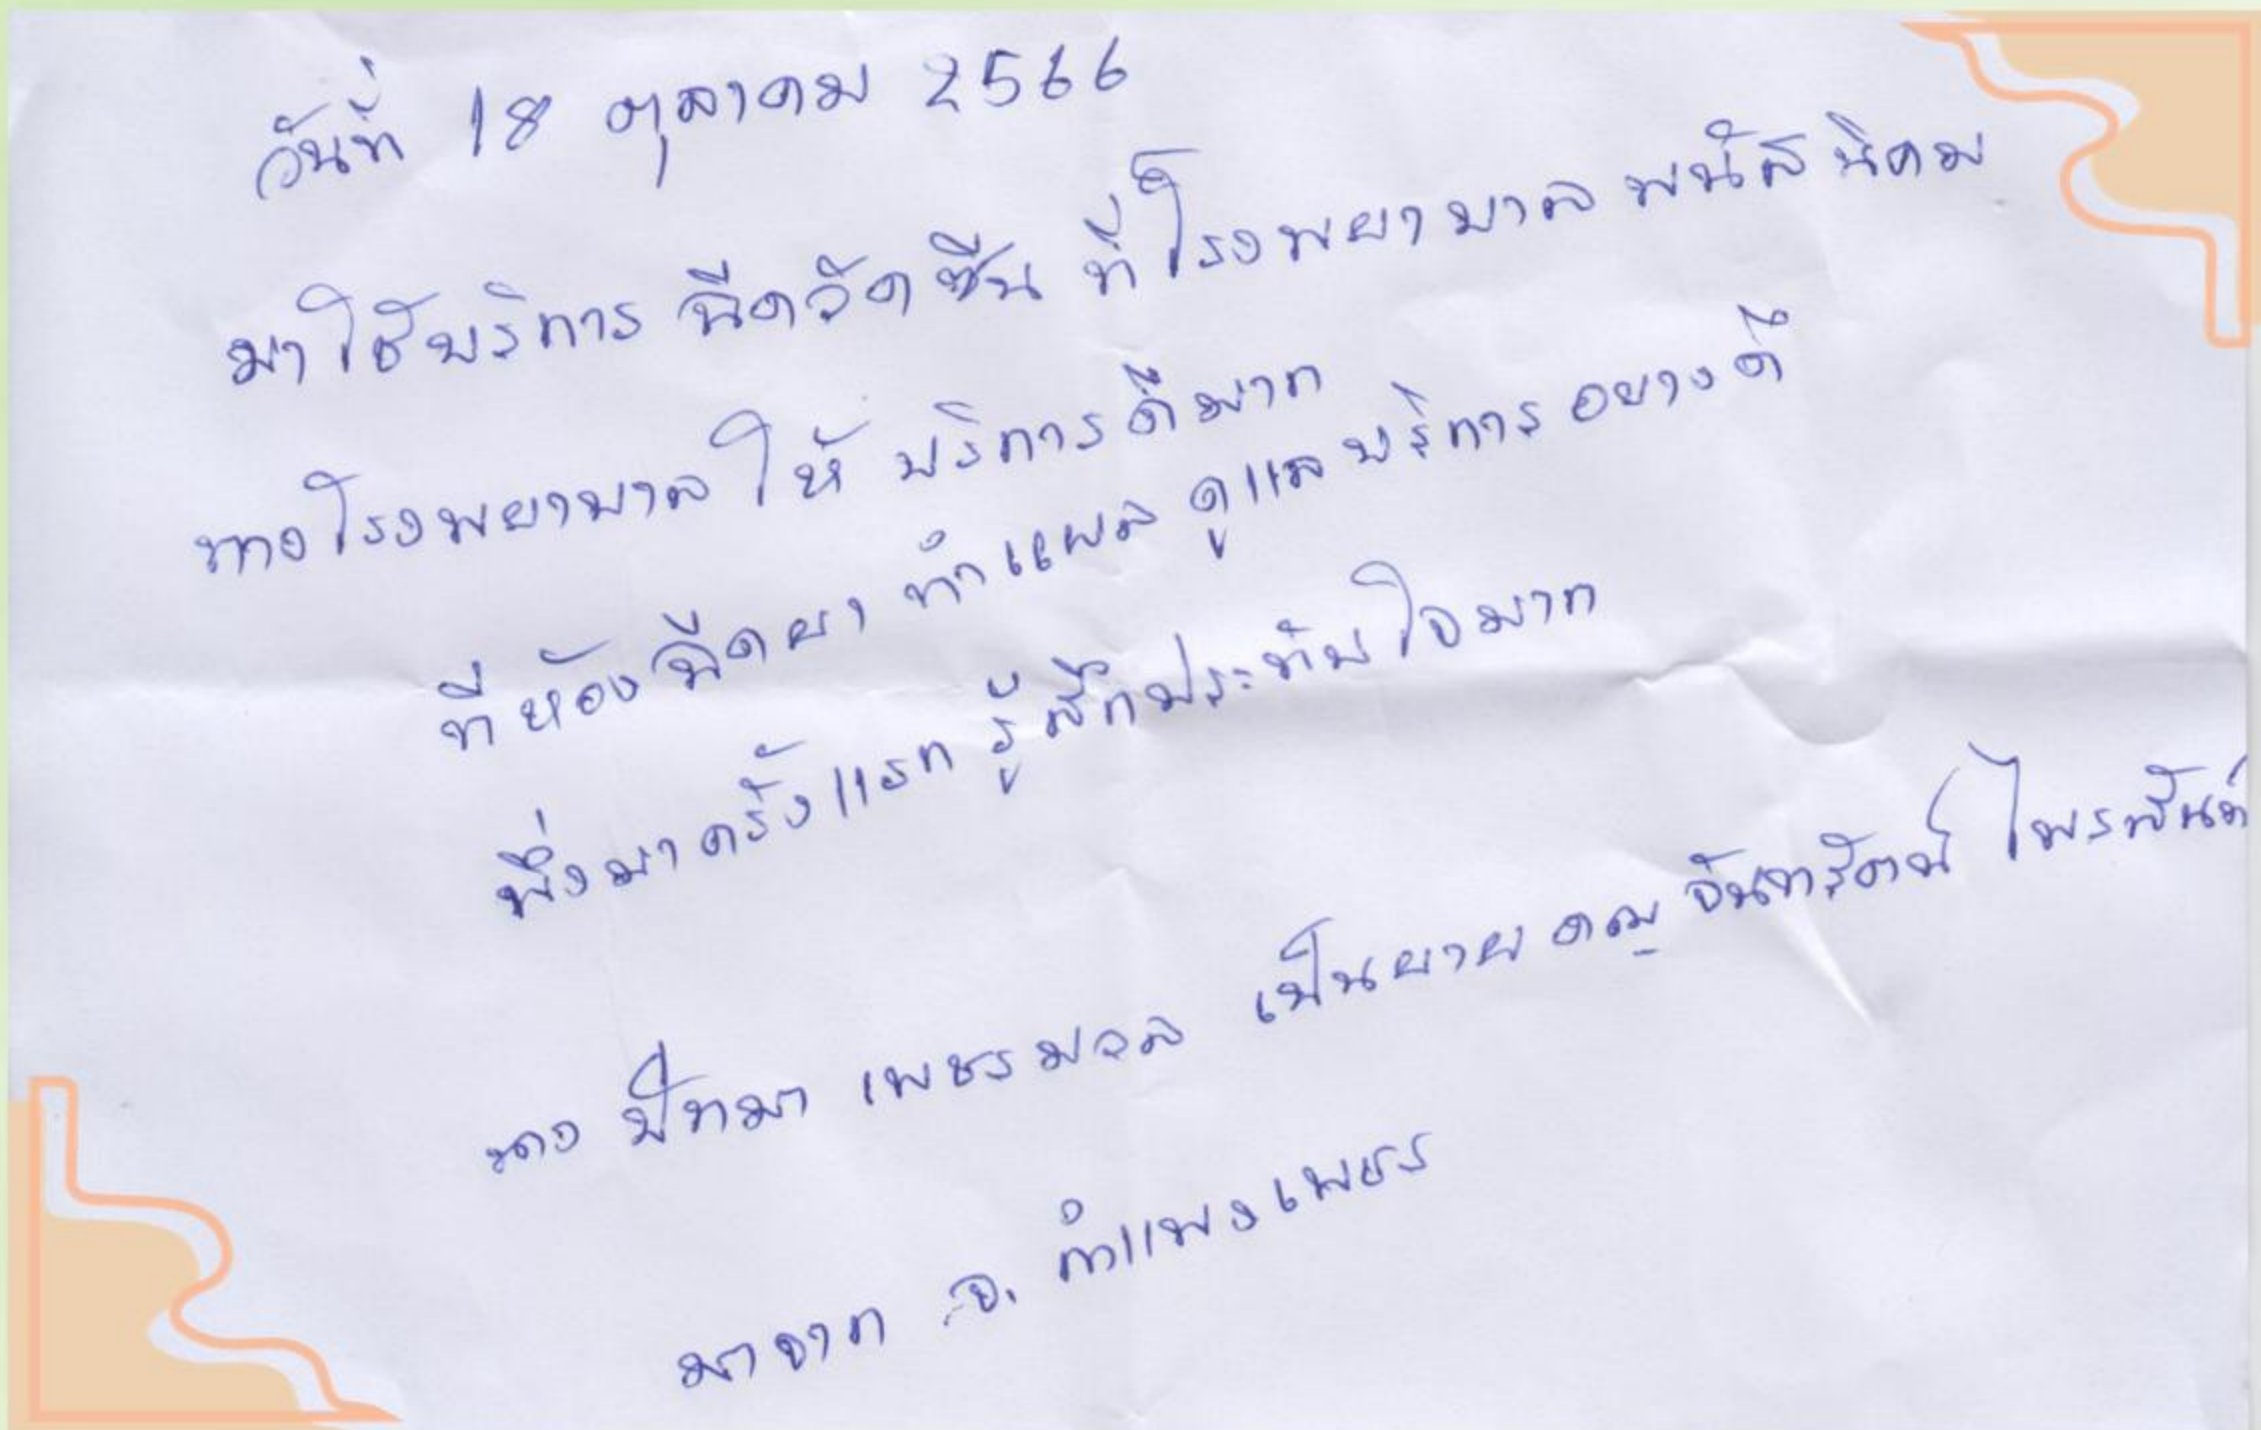 วันที่ 18 ตุลาคม 2566
มาใช้บริการ ฉีดวัคซีน ที่โรงพยาบาลพนัสนิคม
ทางโรงพยาบาลให้ บริการดีมาก
ที่ห้องฉีดยา ทำแผล ดูแลบริการอย่างดี
พึ่งมาครั้งแรก รู้สึกประทับใจมาก
นาง ปัทมา เพชรมอล เป็นยาย คุณ จันทรัตน์
มาจาก จ. กำแพงเพชร